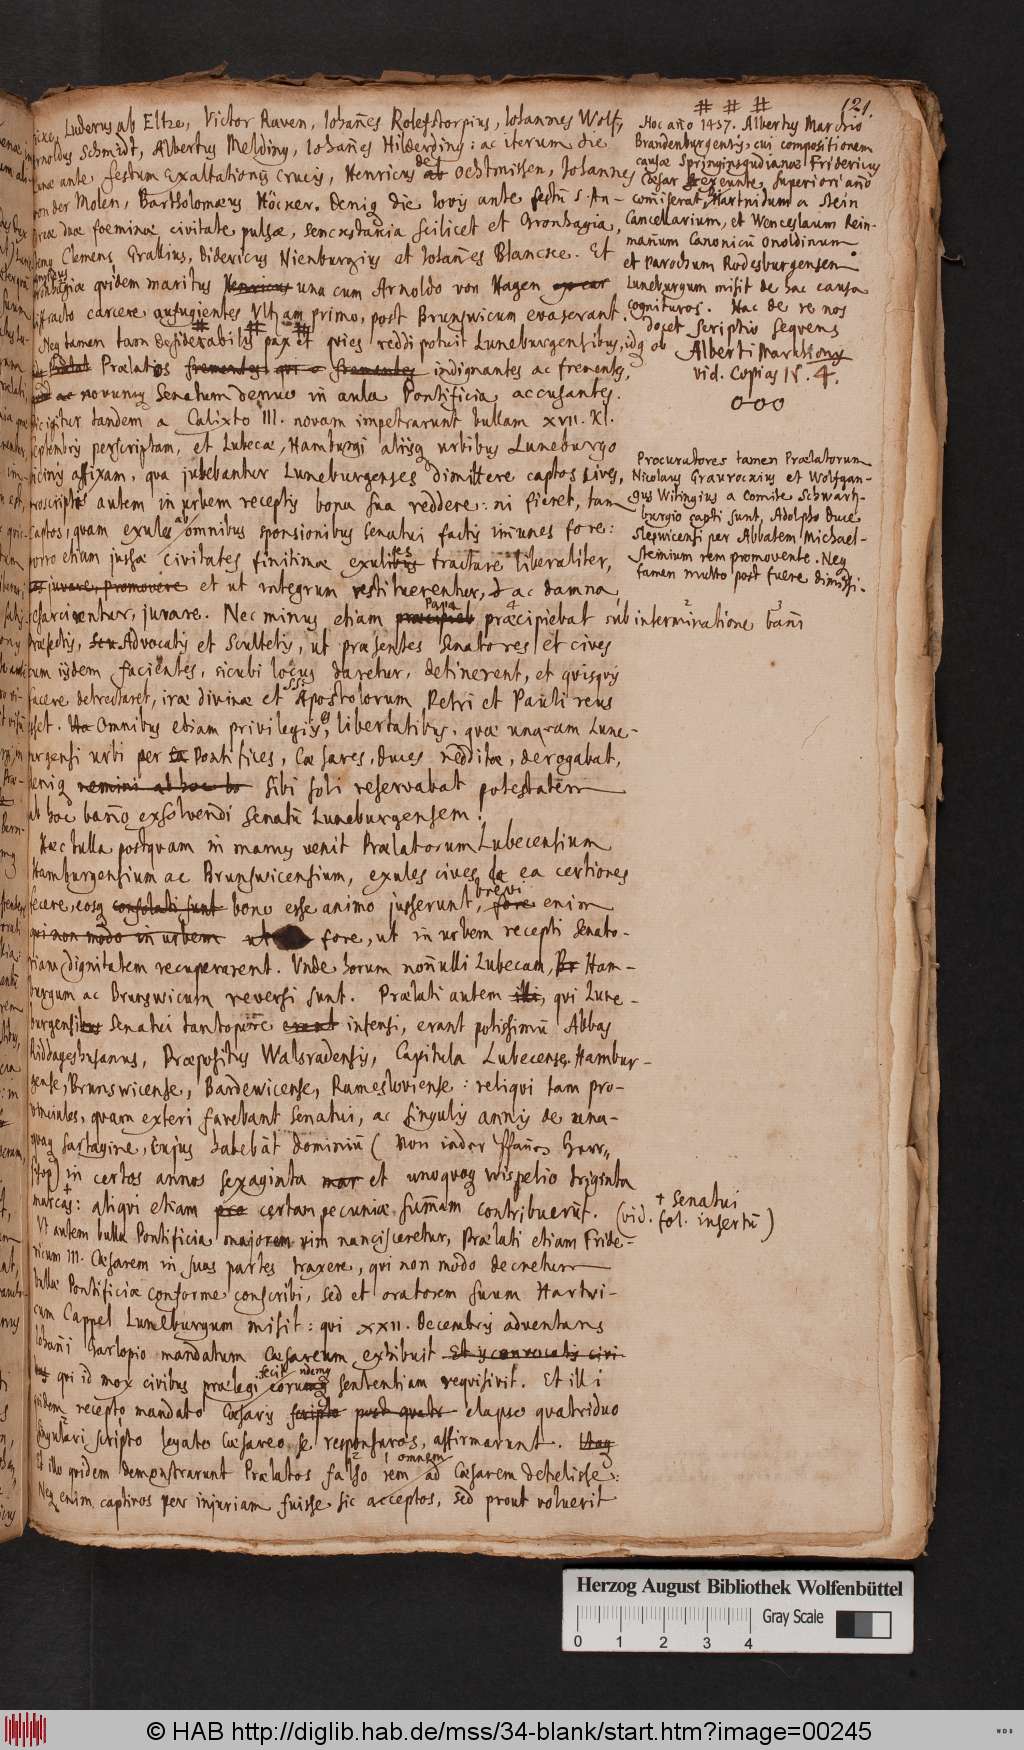 121.
Luderus ab Eltze, Victor Raven, Iohañes Rolefstorpius, Iohannes Wolf,
Arnoldus Schmidt, Albertus Melding, Iohañes Hilderding: ac iterum die
Lunæ ante festum Exaltationis Crucis, Henricus ab de Oedtmissen, Iohannes
von der Molen, Bartholomæus Höcker. Deniq die Iovis ante festũ S. An-
dreæ duæ foeminæ civitate pulsæ, Senc scilicet et Gronhagia,
Clemens Grallius, Didericus Nienburgius et Iohañes Blancke. Et
Gronhagiæ quidem maritus Henricus una cum Arnoldo von Hagen
diffracto carcere aufugientes Vltzam primo, post Brunswicum evaserant.
Neq tamen tam desiderabilis pax et quies reddi potuit Luneburgensibus, idq ob
Prælatos frementes qui a frementes indignantes ac frementes,
ac novumq Senatum denuo in aula Pontificia accusantes.
igitur tandem a Calixto III. novam impetrarunt bullam XVII. Kl.
Septembris perscriptam, et Lubecæ, Hamburgi aliisq urbibus Luneburgo
vicinis affixam, qua jubebantur Luneburgenses dimittere captos cives,
proscriptos autem in urbem receptis bona sua reddere: ni fieret, tam
captos, quam exules ab omnibus sponsionibus Senatui factis imunes fore:
porro etiam jussæ civitates finitimæ exules tractare liberaliter,
juvare, promovere et ut integrum restituerentur, ac damna
resarcirentur, juvare. Nec minus etiam præcipieb Papa præcipiebat sub interminatione bañi
Præfectis, seu Advocatis et Scultetis, ut præsentes Senatores et cives
cum iisdem facientes, sicubi locus daretur, detinerent, et quisquis
facere detrectaret, iræ divinæ et SS. Apostolorum Petri et Pauli reus
esset. Omnibus etiam privilegiis, libertatibus, quæ unquam Lune-
burgensi urbi per Pontifices, Cæsares, Duces redditæ, derogabat,
deniq nemini ab hoc ba sibi soli reservabat potestatem
ab hoc bañno exsolvendi Senatũ Luneburgensem.
Hæc bulla postquam in manus venit Prælatorum Lubecensium
Hamburgensium ac Brunswicensium, exules cives de ea certiores
fecere, eosq consolati sunt bono esse animo jusserunt, brevi fore enim
qui non modo in urbem ut fore, ut in urbem recepti Senato-
riam dignitatem recuperarent. Unde horum noñulli Lubecam, Br Ham-
burgum ac Brunswicum reversi sunt. Prælati autem illi, qui Lune-
burgensi Senatui tantopere erant infensi, erant potissimũ Abbas
Riddageshusanus, Præpositus Walsradensis, Capitula Lubecense, Hambur-
gense, Brunswicense, Bardewicense, Ramesloviense: reliqui tam pro-
vinciales, quam exteri favebant Senatui, ac singulis annis de una-
quaq sartagine, cujus habebãt dominiũ (
) in certos annos sexaginta mar et unoquoq wispelio triginta
marcas +: aliqui etiam pro certam pecuniæ sum̃am contribuerũt.
Vt autem bulla Pontificia majorem vim nancisceretur, Prælati etiam Fride-
ricum III. Cæsarem in suas partes traxere, qui non modo decretum
bullæ Pontificiæ conforme conscribi, sed et oratorem suum Hartwi-
cum Cappel Luneburgum misit: qui XXII. Decembris adventans
Iohañi Garlopio mandatum Cæsareum exhibuit Et is convocatis civi
bus qui id mox civibus prælegi fecit, eorumq sententiam requisivit. Et illi
quidem recepto mandato Cæsaris scripto post quatr elapso quatriduo
singulari scripto legato Cæsareo se responsuros, affirmarunt. Itaq
Et illo quidem demonstrarunt Prælatos falso rem omnem ad Cæsarem detulisse:
Neq enim captivos per injuriam fuisse sic acceptos, sed prout voluerit
# # #
Hoc año 1457. Albertus Marchio
Brandenburgensis, cui compositionem
causæ Springinsgudianæ Fridericus
Cæsar exeunte superiori año
com̃iserat, Hartnidum a Stein
Cancellarium, et Wenceslaum Rein-
mañum Canonicũ Onoldinum
et Parochum Radesburgensem
Luneburgum misit de hac causa
cognituros. Hac de re nos
docet scriptio sequens
Alberti Marchionis
vid. Copias N. 4.
000
Procuratores tamen Prælatorum
Nicolaus Graurockius et Wolfgan-
gus Witingius a Comite Schwarh-
burgio capti sunt, Adolpho Duce
Slesvicensi per Abbatem Michael-
steinium rem promovente. Neq
tamen multo post fuere dimissi.
+ Senatui
(vid. fol. insertũ)
Herzog August Bibliothek Wolfenbüttel
Gray Scale
0 1 2 3 4
© HAB http://diglib.hab.de/mss/34-blank/start.htm?image=00245
WDB